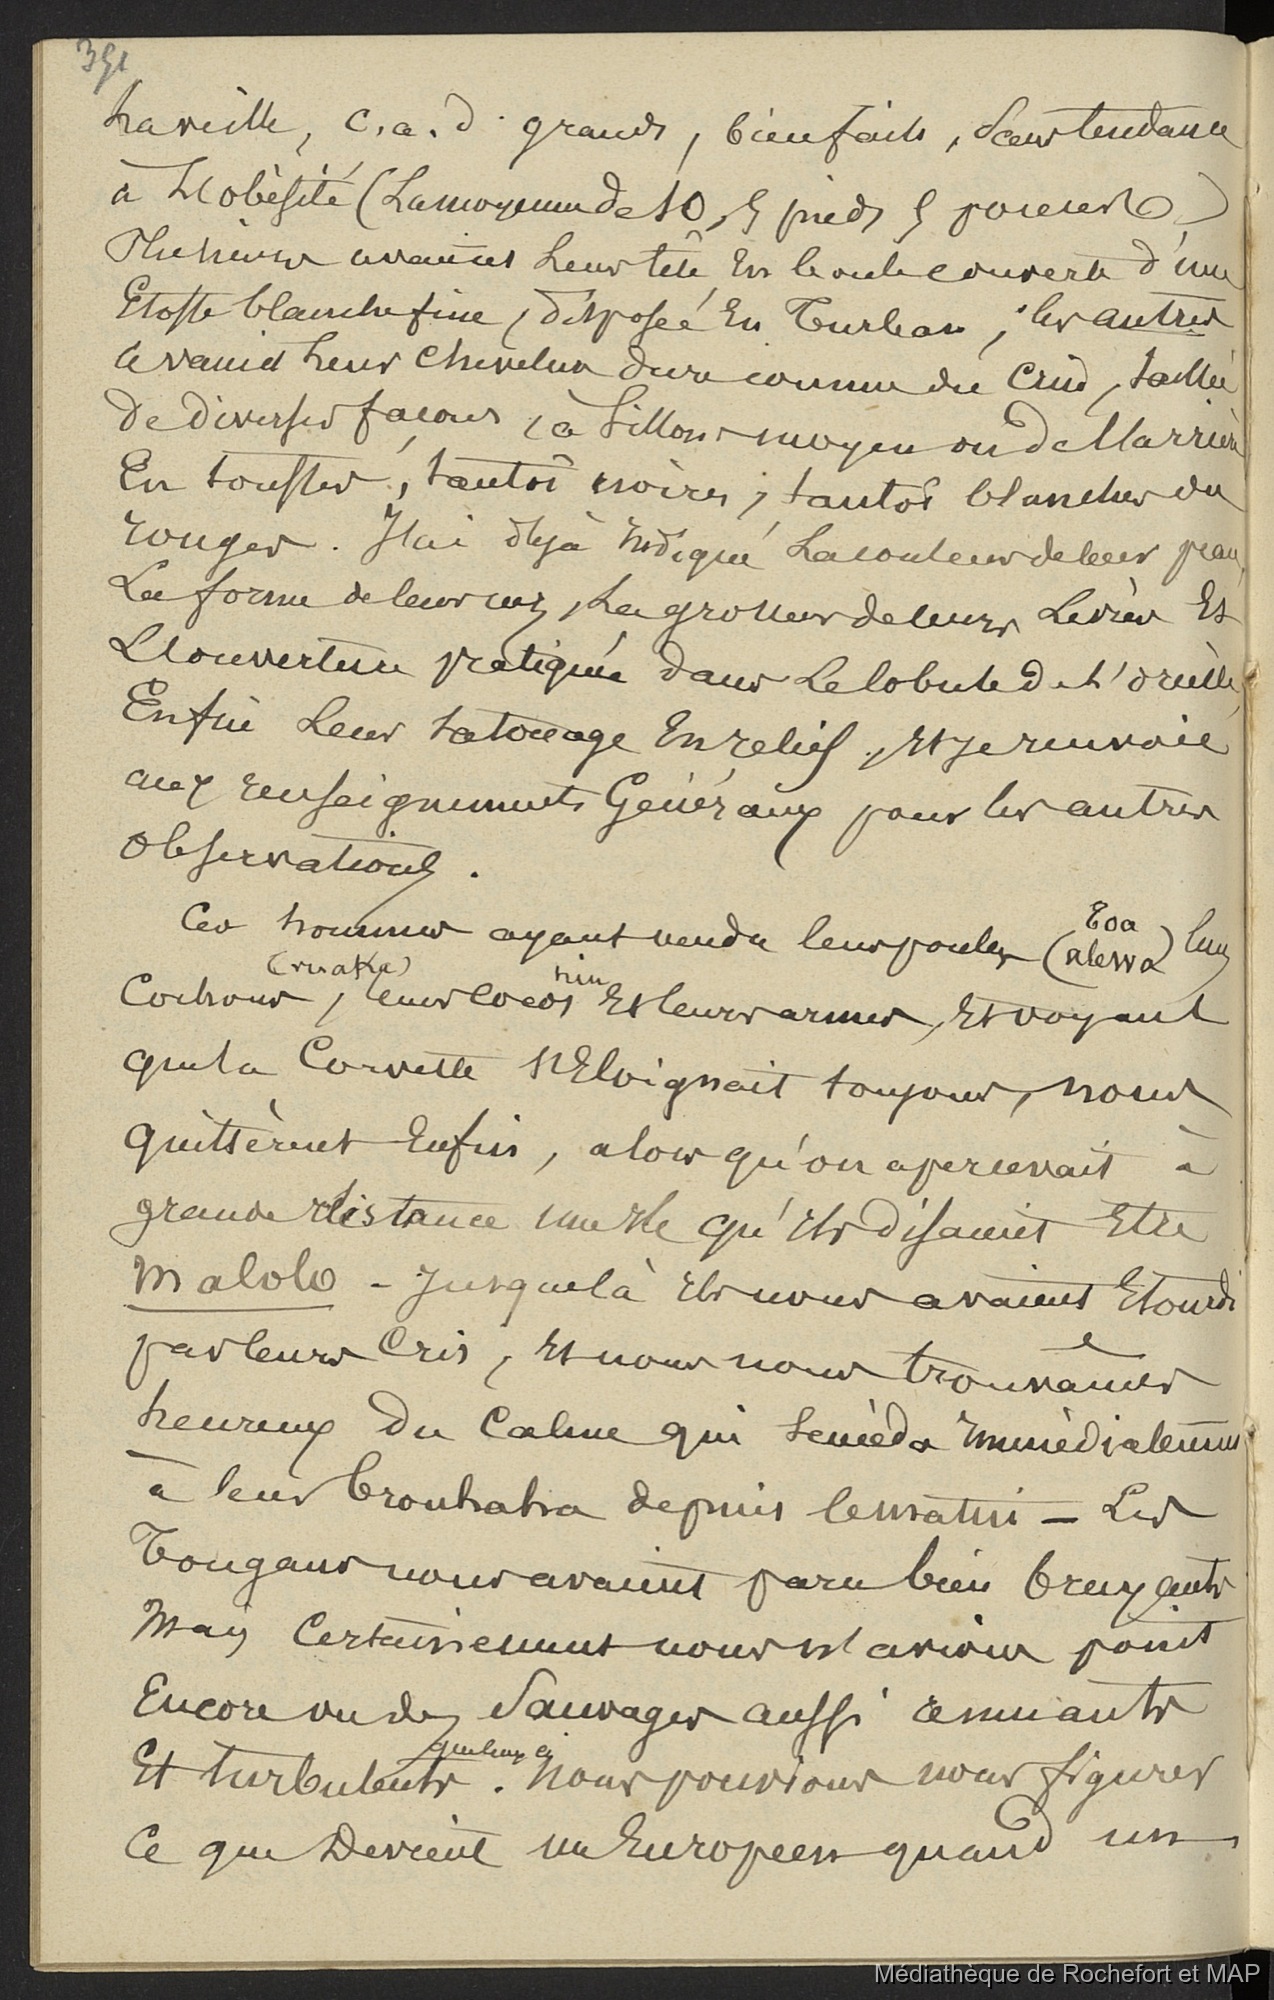 391
la veille, c.a.d. grands, bien faits, sans tendance
à l'obésité (la moyenne de 10, 5 pieds 5 pouces)
Plusieurs avaient leur tête en boule couverte d'une
Etoffe blanche fine, disposée en Turban, les autres
avaient leur chevelure dure comme du crin, taillée
de diverses façons, à sillons moyen ou de l'arrière
En touffes, tantôt noires, tantôt blanches ou
rouges. J'ai déjà indiqué la couleur de leur peau,
La forme de leur nez, la grosseur de leurs lèvres Et
L'ouverture pratiquée dans le lobule de l'oreille,
Enfin leur tatouage En relief, Et je renvoie
aux renseignements Généraux pour les autres
observations.
Ces hommes ayant vendu leurs poules (Toa alewa) leurs
Cochons (vuaka), leurs cocos niu Et leurs armes, Et voyant
que la Corvette s'Eloignait toujours, nous
quittèrent Enfin, alors qu'on apercevait à
grande distance une Ile qu'ils disaient Etre
Malolo - Jusque là ils nous avaient Etourdi
par leurs Cris, Et nous nous trouvâmes
heureux du Calme qui succéda immédiatement
à leur brouhaha depuis le matin - Les
Tongans nous avaient paru bien bruyants
Mais Certainement nous n'avions point
Encore vu des Sauvages aussi remuants
Et turbulents que ceux ci. Nous pouvions nous figurer
Ce que Devient un Européen quand un
Médiathèque de Rochefort et MAP